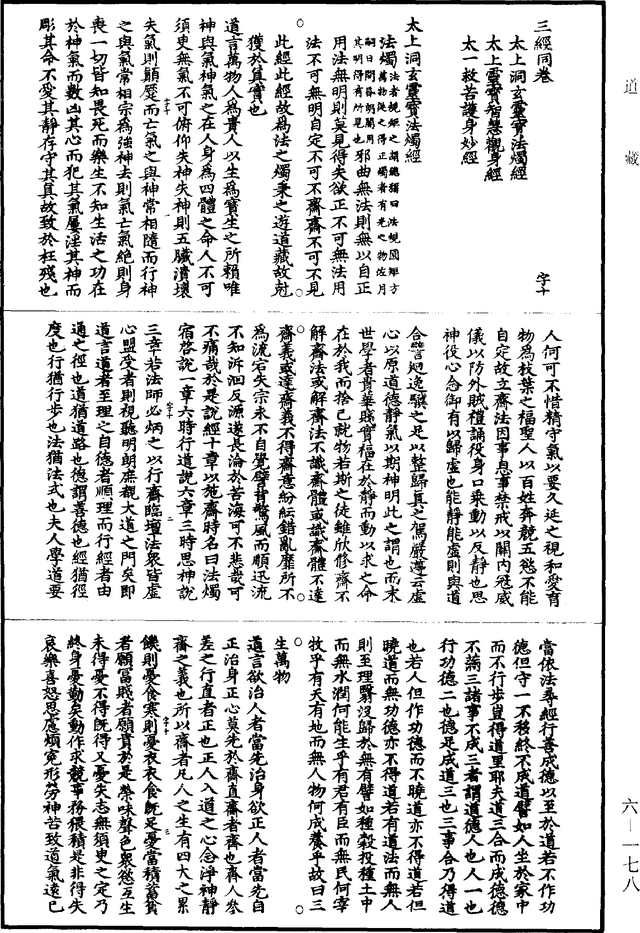 道藏
三經同卷
太上洞玄靈寶法燭經
太上靈寶智慧觀身經
太一救苦護身妙經
字十
太上洞玄靈寶法燭經
法燭
用法無明則莫見得失欲正不可無法用
法不可無明自定不可不齋齋不可不見
此經此經故為法之燭秉之遊道藏故剋
獲於其實也
道言萬物人為貴人以生為寶生之所賴唯
神與氣神氣之在人身為四體之命人不可
須臾無氣不可俯仰失神失神則五臟潰壞
失氣則顛蹙而亡氣之與神常相隨而行神
之與氣常相宗為強神去則氣亡氣絕則身
喪一切皆知畏死而樂生不知生活之功在
於神氣而數凶其心而犯其氣屢淫其神而
彫其命不愛其靜存守其真故致於枉殘也
人何可不惜精守氣以要久延之視和愛育
物為枝葉之福聖人以百姓奔競五慾不能
自定故立齋法因事息事禁戒以閑內寇威
儀以防外賊禮誦役身口乘動以反靜也思
神役心念御有以歸虛也能靜能虛則與道
合譬迴逸驥之足以整歸真之駕嚴遵云虛
心以原道德靜氣以期神明此之謂也而末
世學者貴華賤實福在於靜而動以求之命
在於我而捨己就物若斯之徒雖欣修齋不
解齋法或解齋法不識齋體或識齋體不達
齋義或達齋義不得齋意紛紜錯亂靡所不
為流宕失宗永不自覺譬背驚風而順迅流
不知泝洄反源遂長淪於苦海可不悲哉可
不痛哉於是說經十章以施齋時名曰法燭
宿啓說一章六時行道說六章三時思神說
三章若法師必炳之以行齋臨壇法眾皆虛
心盟受者則視聽明朗庶覩大道之門矣即
道言道者至理之目德者順理而行經者由
通之徑也道猶道路也德謂善德也經猶徑
度也行猶行步也法猶法式也夫人學道要
當依法尋經行善成德以至於道若不作功
德但守一不移終不成道譬如人坐於家中
而不行步豈得道里耶夫道三合而成德德
不滿三諸事不成三者謂道德人也人一也
行功德二也德足成道三也三事合乃得道
也若人但作功德而不曉道亦不得道若但
曉道而無功德亦不得道若有道法而無人
則至理翳沒歸於無有譬如種穀投種土中
而無水潤何能生乎有君有臣而無民何宰
牧乎有天有地而無人物何成養乎故曰三
生萬物
道言欲治人者當先治身欲正人者當先自
正治身正心莫先於齋直齋者齊也齊人參
差之行直者正也正人入道之心念淨神靜
齋之義也所以齋者凡人之生有四大之累
饑則憂食寒則憂衣衣食既足憂當積蓄貧
者願富賤者願貴於是榮味聲色眾慾互生
未得憂不得既得又憂失志無須臾之定乃
終身憂勤矣動作求競事務猥積是非得失
哀樂喜怒思慮煩寃形勞神苦致道氣遠已
六—一七八